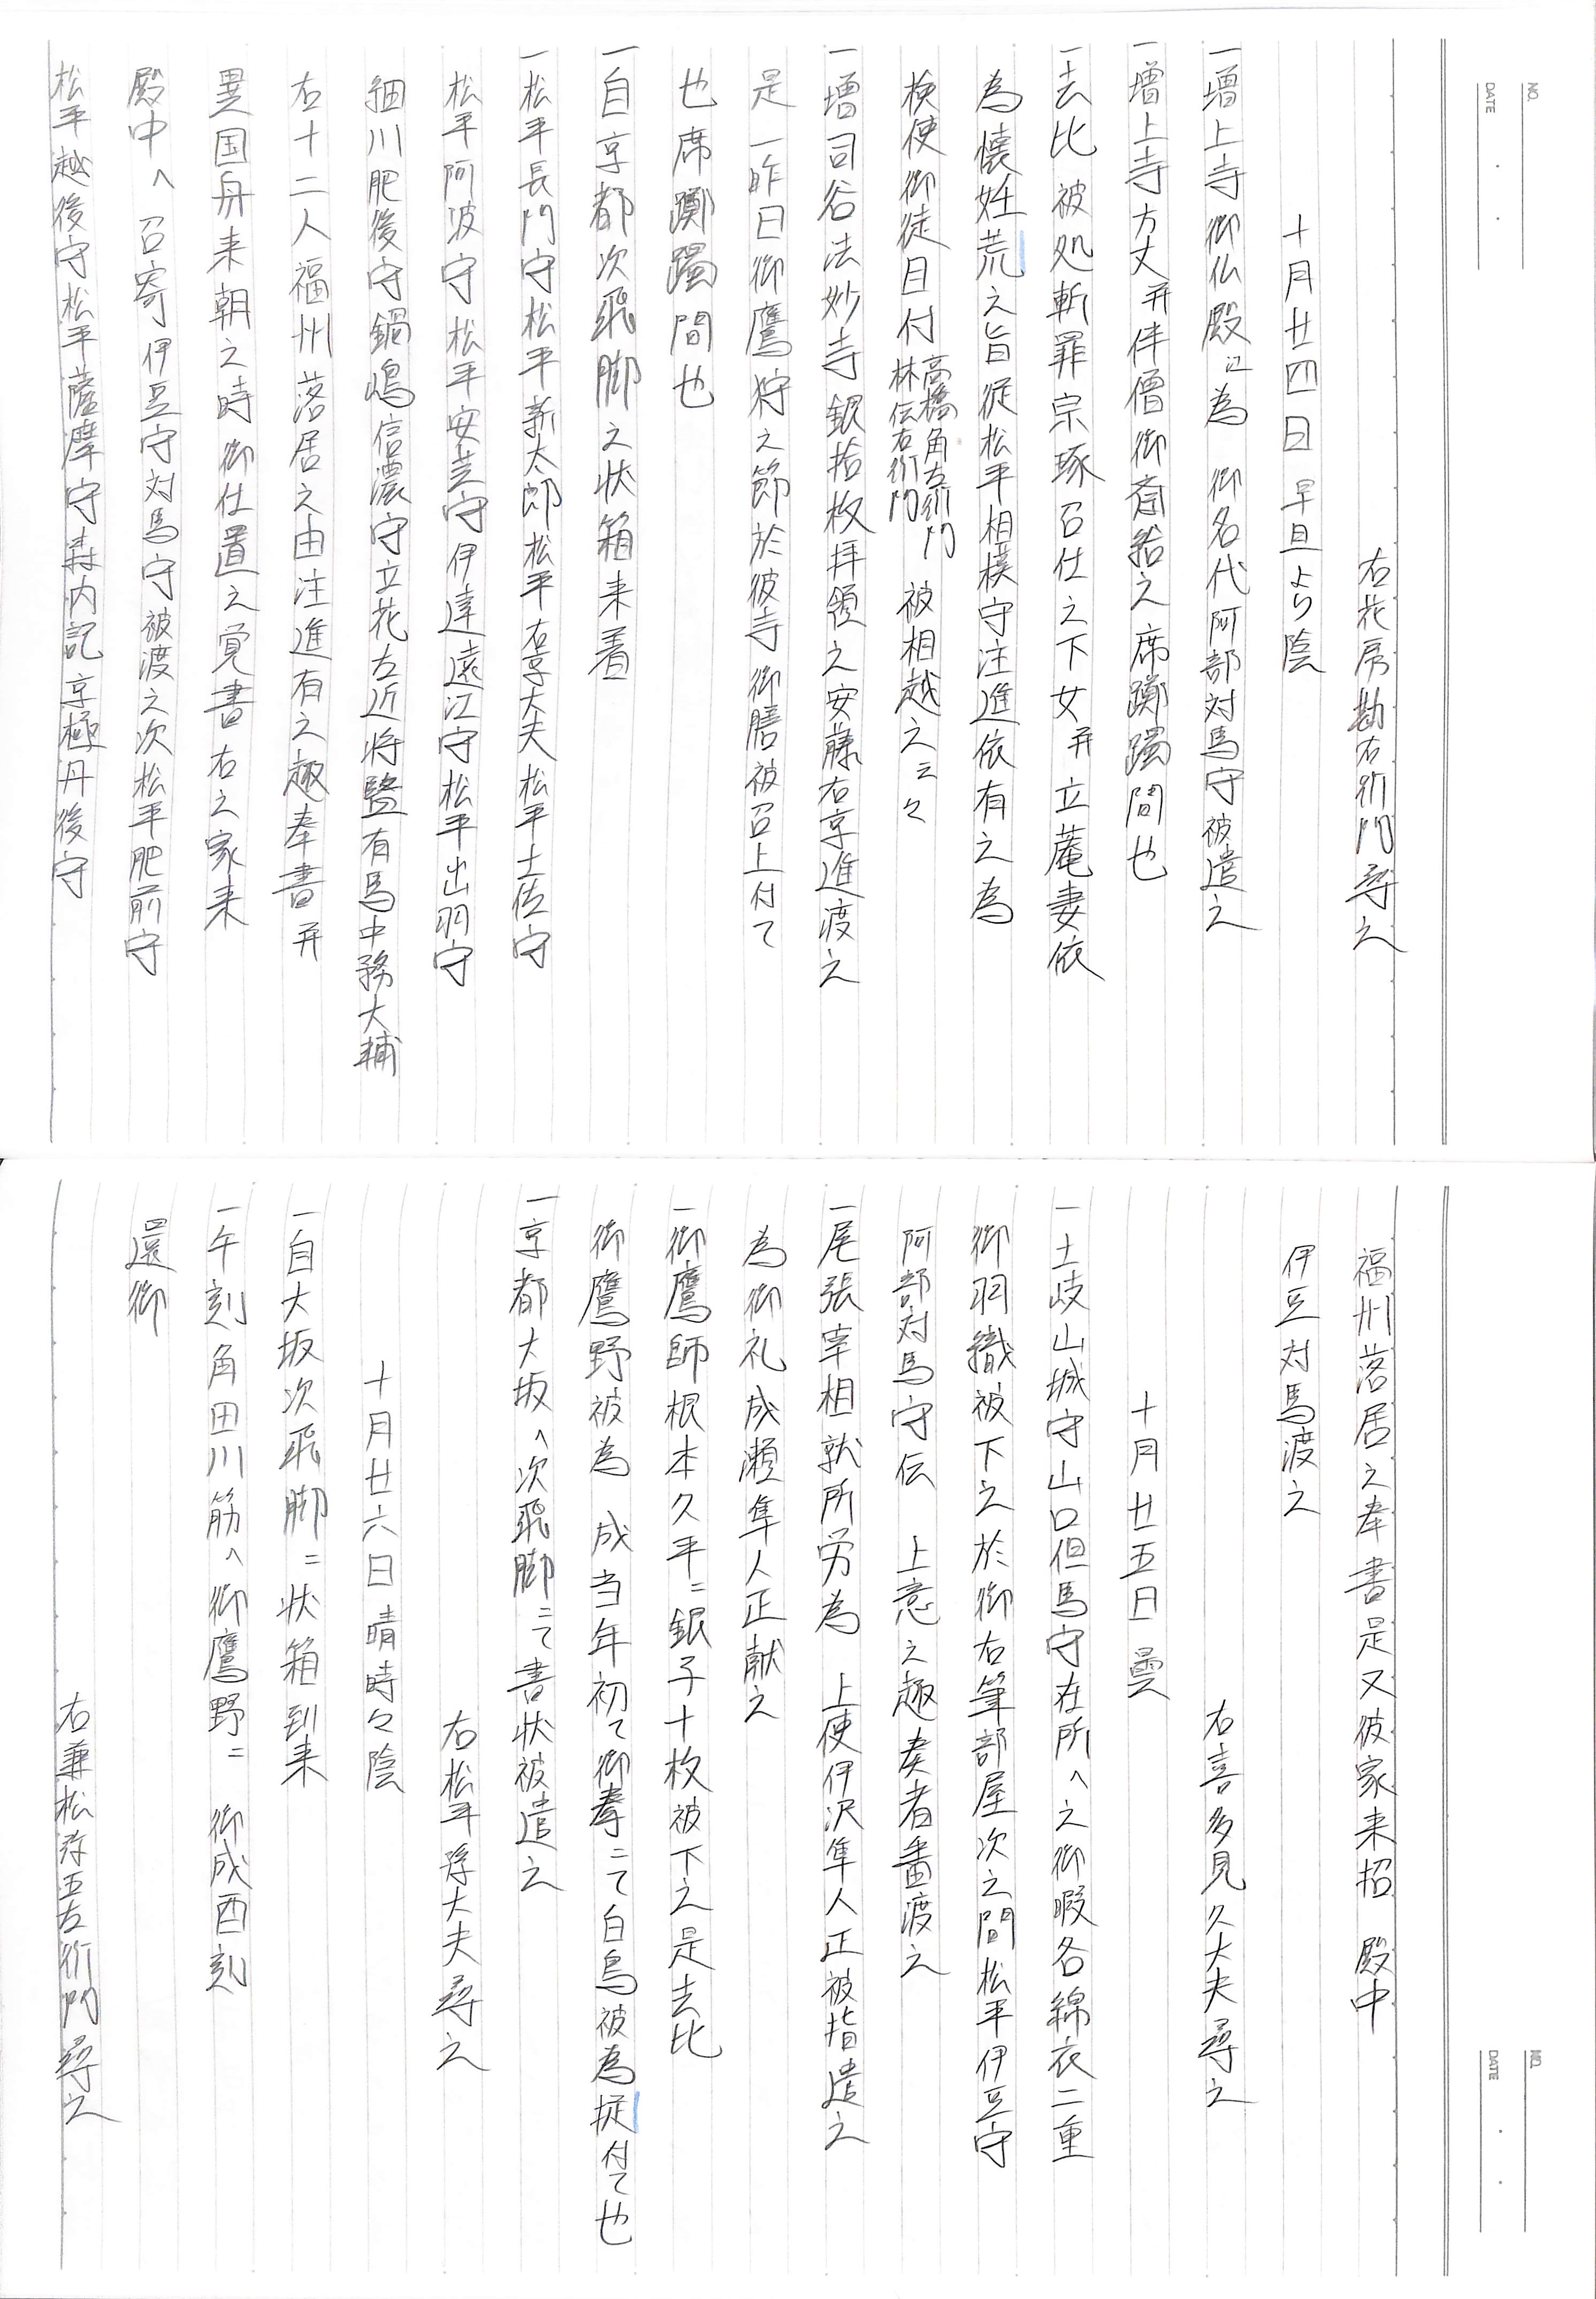 右花房勘右衛門尋之
十月廿四日 早旦より陰
一増上寺御仏殿江為 御名代阿部対馬守被遣之
一増上寺方丈并伴僧御斎給之席躑躅間也
一去比被処斬罪宗琢召仕之下女并立菴妻依
為懐姙荒之旨従松平相模守注進依有之為
検使御徒目付 高橋角左衛門 林伝右衛門 被相越之云々
一増司谷法妙寺銀拾枚拝領之安藤右京進渡之
是一昨日御鷹狩之節於彼寺御膳被召上付て
也席躑躅間也
一自京都次飛脚之状箱来着
一松平長門守松平新太郎松平右京大夫松平土佐守
松平阿波守松平安芸守伊達遠江守松平出羽守
細川肥後守鍋嶋信濃守立花左近将監有馬中務大輔
右十二人福州落居之由注進有之趣奉書并
異国舟来朝之時御仕置之覚書右之家来
殿中へ召寄伊豆守対馬守被渡之次松平肥前守
松平越後守松平薩摩守森内記京極丹後守
福州落居之奉書是又彼家来招 殿中
伊豆対馬渡之
右喜多見久大夫尋之
十月廿五日 曇
一土岐山城守山口但馬守在所へ之御暇各綿衣二重
御羽織被下之於御右筆部屋次之間松平伊豆守
阿部対馬守伝 上意之趣奏者番渡之
一尾張宰相就所労為 上使伊沢隼人正被指遣之
為御礼成瀬隼人正献之
一御鷹師根本久平ニ銀子十枚被下之是去比
御鷹野被為 成当年初て御拳ニて白鳥被為捉付て也
一京都大坂へ次飛脚ニて書状被遣之
右松平孫大夫尋之
十月廿六日 晴時々陰
一自大坂次飛脚ニ状箱到来
一午刻角田川筋へ御鷹野ニ 御成酉刻
還御
右兼松弥五左衛門尋之
NO.
DATE ・ ・
NO.
DATE ・ ・